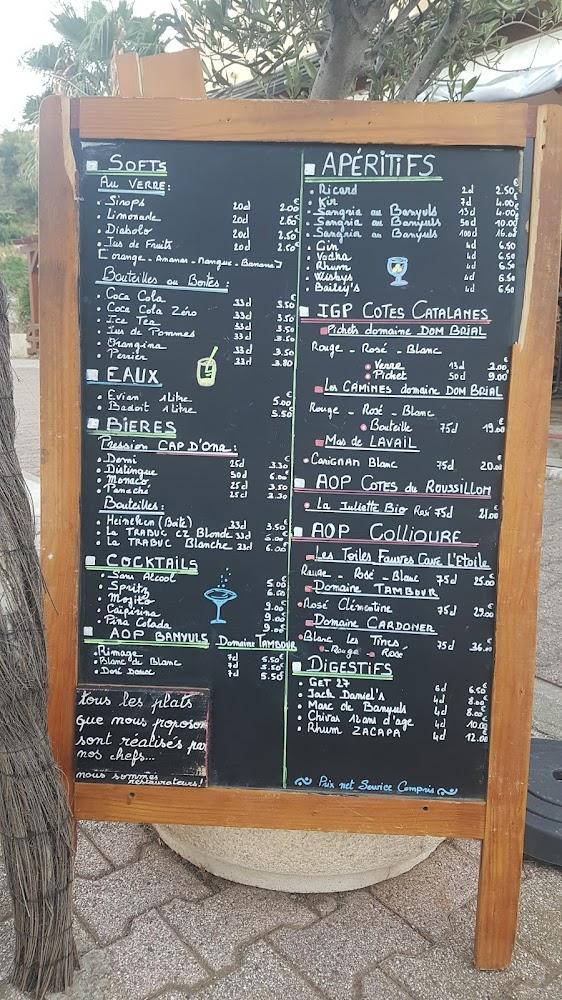 SOFTS
AU VERRE:
• Sirops 20cl 2.00€
• Limonade 20cl 2.60€
• Diabolo 20cl 2.60€
• Jus de Fruits 20cl 2.50€
[orange - Ananas - Mangue - Banane]
Bouteilles ou Boites:
• Coca Cola 33cl 3.50€
• Coca Cola Zéro 33cl 3.50€
• Ice Tea 33cl 3.50€
• Jus de Pommes 33cl 3.50€
• Orangina 33cl 3.50€
• Perrier 33cl 3.80
EAUX
• Evian 1 litre 5.00€
• Badoit 1 litre 5.50€
BIERES
Pression CAP D'Ona:
• Demi 25cl 3.30€
• Distingue 50cl 6.00€
• Monaco 25cl 3.50€
• Panaché 25cl 3.30
Bouteilles:
• Heineken (Boite) 33cl 3.50€
• La TRABUC CZ Blonde 33cl 6.00€
• La TRABUC Blanche 33cl 6.00€
COCKTAILS
• Sans Alcool 5.00€
• Spritz 6.00€
• Mojito 9.00€
• Caïpirina 9.00€
• Pina Colada 9.00€
AOP BANYULS Domaine TAMBOUR
• Rimage 7cl 5.50€
• Blanc de Blanc 7cl 5.50€
• Doré Doux 7cl 5.50
tous les plats
que nous proposons
sont réalisés par
nos chefs...
nous sommes
restaurateurs!
APÉRITIFS
• Ricard 2cl 2.50€
• Kir 7cl 4.00€
• Sangria au Banyuls 15cl 4.00€
• Sangria au Banyuls 50cl 10.00€
• Sangria au Banyuls 100cl
• Gin 4cl 6.50
• Vodka 4cl 6.50
• Rhum 4cl 6.50
• Wiskys 4cl 6.50
• Bailey's 4cl 6.50
IGP COTES CATALANES
Pichets domaine DOM BRIAL
Rouge - Rosé - Blanc
• Verre 13cl 2.00€
• Pichet 50cl 9.00€
Les CAMINES domaine DOM BRIAL
Rouge - Rosé - Blanc
• Bouteille 75cl 19.00€
Mas de LAVAIL
• CARIGNAN Blanc 75cl 20.00
AOP COTES du ROUSSILLON
• La Juliette Bio Rosé 75cl 21.00€
AOP COLLIOURE
Les Toiles Fauves Cave L'Etoile
Rouge - Rosé - Blanc 75cl 25.00€
Domaine TAMBOUR
• Rosé Clémentine 75cl 29.00€
Domaine CARDONER
• Blanc les Tines 75cl 36.00€
- Rouge - Rosé
DIGESTIFS
• GET 27 6cl 6.50€
• Jack Daniel's 4cl 8.00€
• Marc de Banyuls 4cl 8.00€
• Chivas 12 ans d'age 4cl 10.00€
• Rhum ZACAPA 4cl 12.00€
Prix net Service Compris